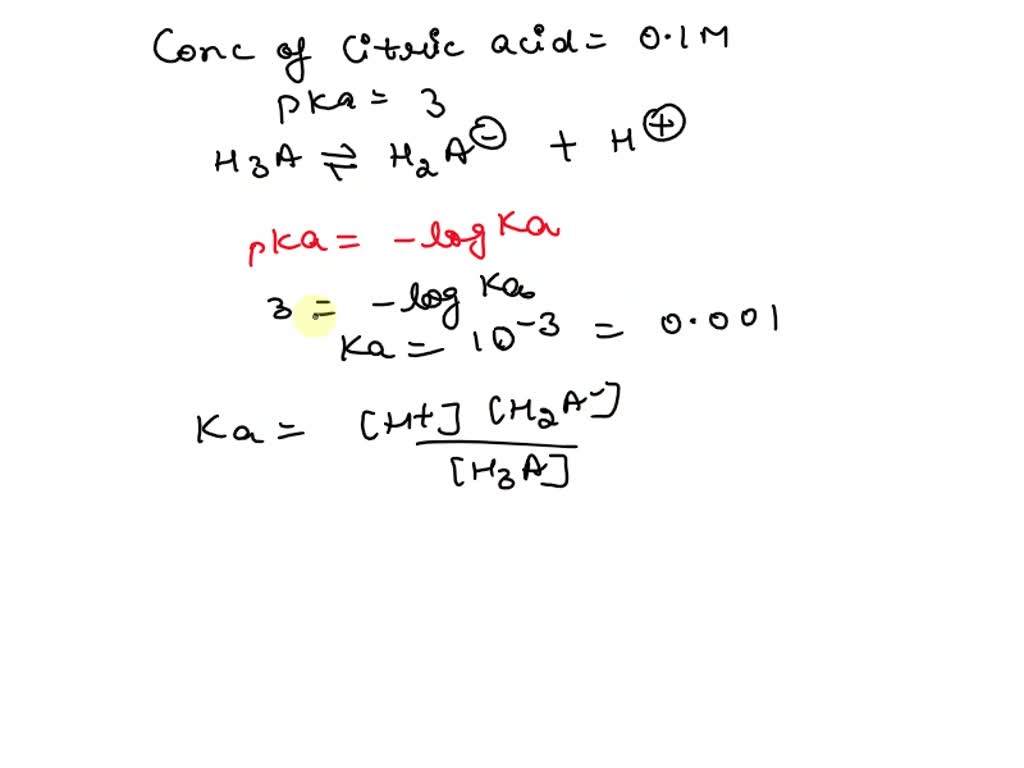 Conc of Citric acid = 0.1M
pKa = 3
H3A ⇌ H2A⊖ + H⊕
pKa = -log Ka
3 = -log Ka
Ka = 10^-3 = 0.001
Ka = [H+] [H2A-] / [H3A]